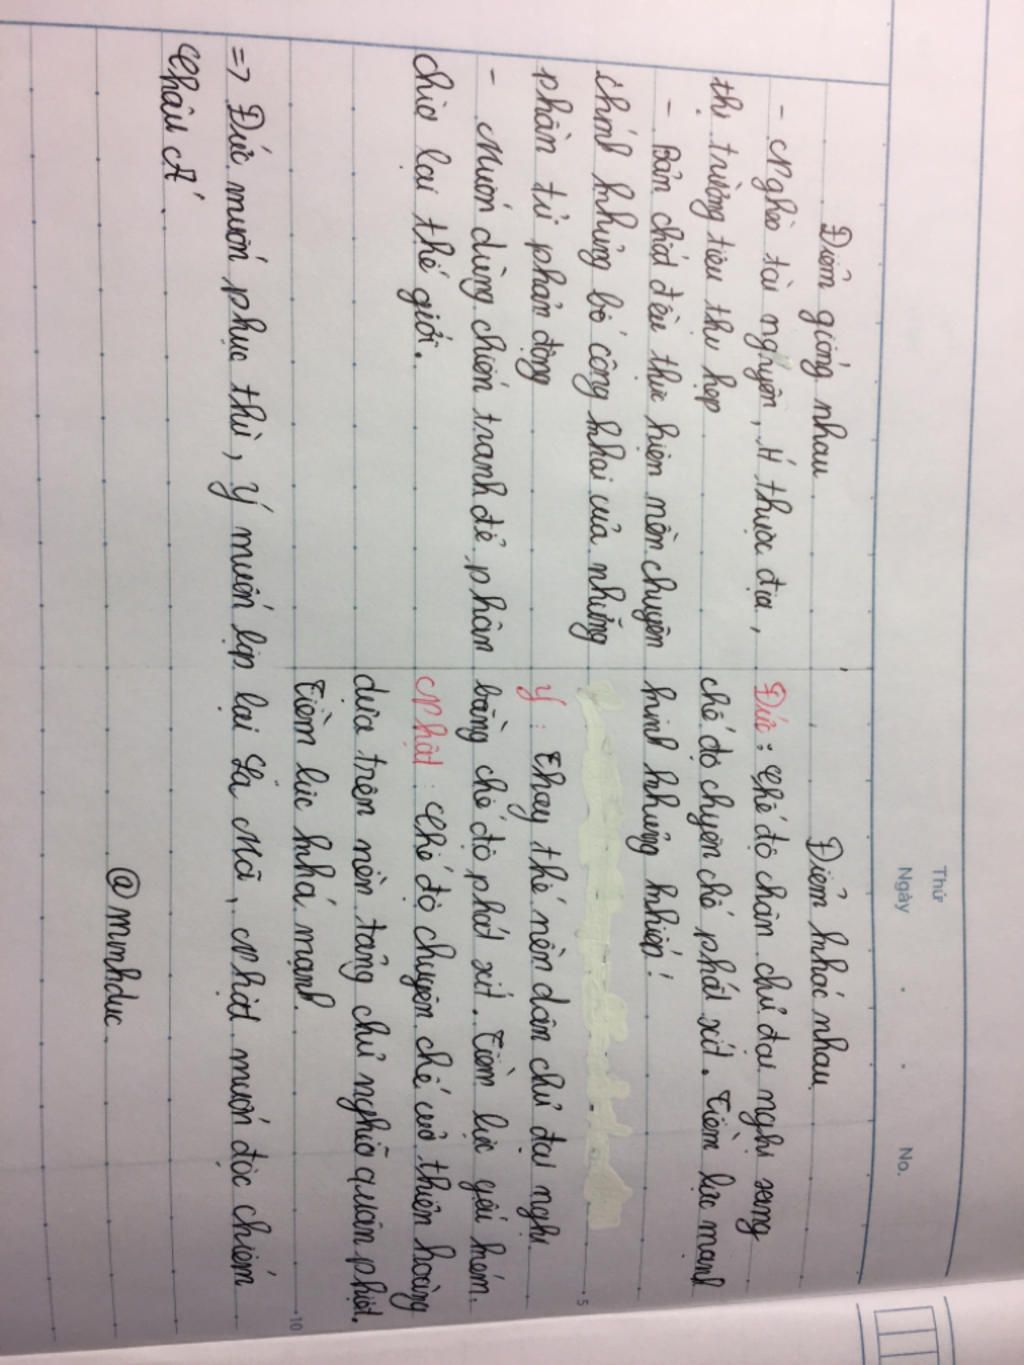 Thứ
Ngày
No.
Điểm giống nhau
- Nghèo tài nguyên, ít thuộc địa,
thị trường tiêu thụ hẹp
- Bản chất đều thực hiện nền chuyên
chính khủng bố công khai của những
phần tử phản động
- Muốn dùng chiến tranh để phân
chia lại thế giới.
Điểm khác nhau
Đức: Chế độ chân chủ đại nghị sang
chế độ chuyên chế phát xít. Tiềm lực mạnh
hình khủng khiếp!
5
Ý: Thay thế nền dân chủ đại nghị
bằng chế độ phát xít. Tiềm lực yếu kém.
Nhật: Chế độ chuyên chế của thiên hoàng
dựa trên nền tảng chủ nghĩa quân phiệt.
Tiềm lực khá mạnh.
10
=> Đức muốn phục thù, Ý muốn lập lại La Mã, Nhật muốn độc chiếm
Châu Á.
@mmhduc